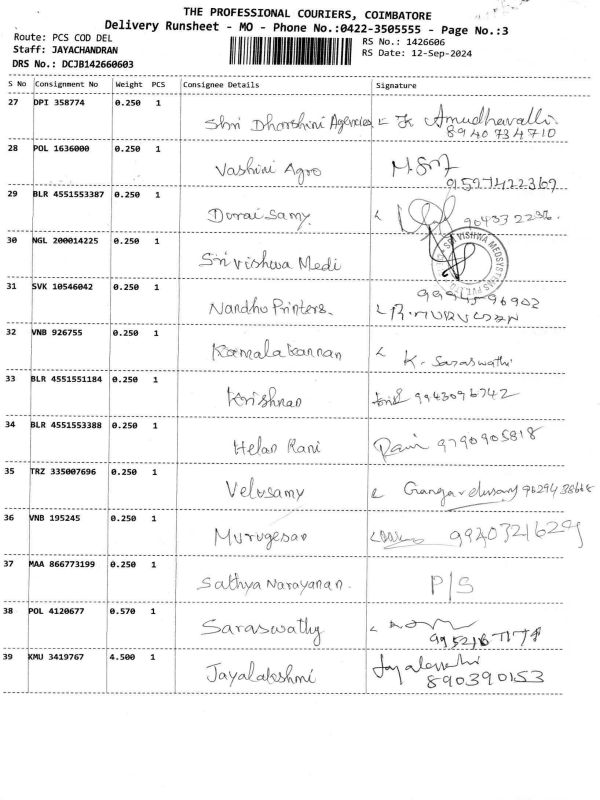 THE PROFESSIONAL COURIERS, COIMBATORE
Delivery Runsheet - MO - Phone No.:0422-3505555 - Page No.:3
Route: PCS COD DEL RS No.: 1426606
Staff: JAYACHANDRAN RS Date: 12-Sep-2024
DRS No.: DCJB142660603
S No Consignment No Weight PCS Consignee Details Signature
27 DPI 358774 0.250 1
Shri Dharshini Agencies Amudhavalli
8940734710
28 POL 1636000 0.250 1
Vashini Agro
9159742236
29 BLR 4551553387 0.250 1
Duraisamy.
30 NGL 200014225 0.250 1
Sri Vishwa Medi SRI VISHWA MEDSYSTEMS PVT LTD
31 SVK 10546042 0.250 1
Nandhu Printers.
32 VNB 926755 0.250 1
Kamalakannan K. Saraswathi
33 BLR 4551551184 0.250 1
Krishnan 9943096742
34 BLR 4551553388 0.250 1
Helan Rani Rani 9790905818
35 TRZ 335007696 0.250 1
Velusamy
36 VNB 195245 0.250 1
Murugesan
37 MAA 866773199 0.250 1
Sathya Narayanan. P/S
38 POL 4120677 0.570 1
Saraswathy
39 KMU 3419767 4.500 1
Jayalakshmi Jayalakshmi
890390153